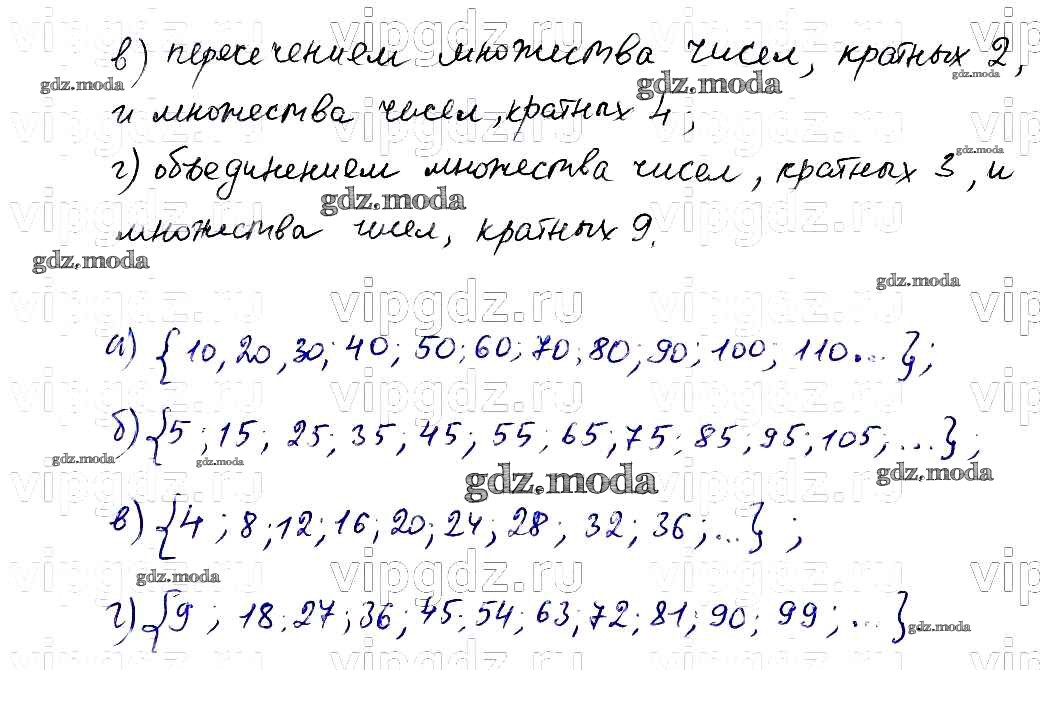 в) пересечением множества чисел, кратных 2,
и множества чисел, кратных 4;
г) объединением множества чисел, кратных 3, и
множества чисел, кратных 9.
а) {10, 20, 30; 40; 50; 60; 70; 80; 90; 100; 110... };
б) {5; 15; 25; 35; 45; 55; 65; 75; 85; 95; 105; ...};
в) {4; 8; 12; 16; 20; 24; 28; 32; 36; ...};
г) {9; 18; 27; 36; 45; 54; 63; 72; 81; 90; 99; ...}.
vipgdz.ru
gdz.moda